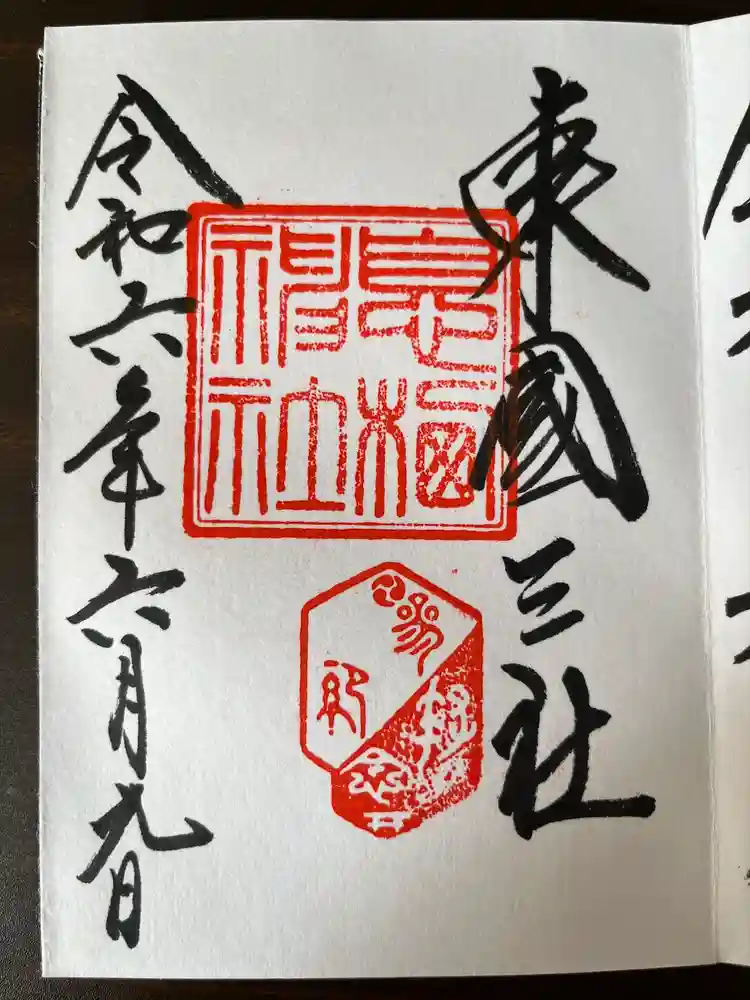 東國三社
息栖神社
令和六年六月九日